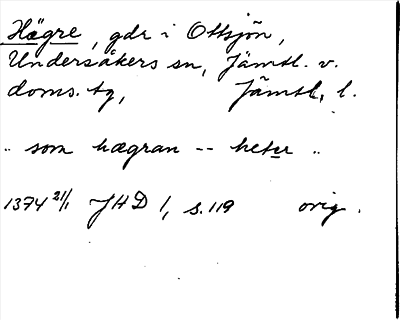 Hägre, gdr i Ottsjön,
Undersåkers sn, Jämtl. v.
doms. tg, Jämtl. l.
.. som hægran -- heter ..
1374 21/1 JHD 1, s. 119 orig.